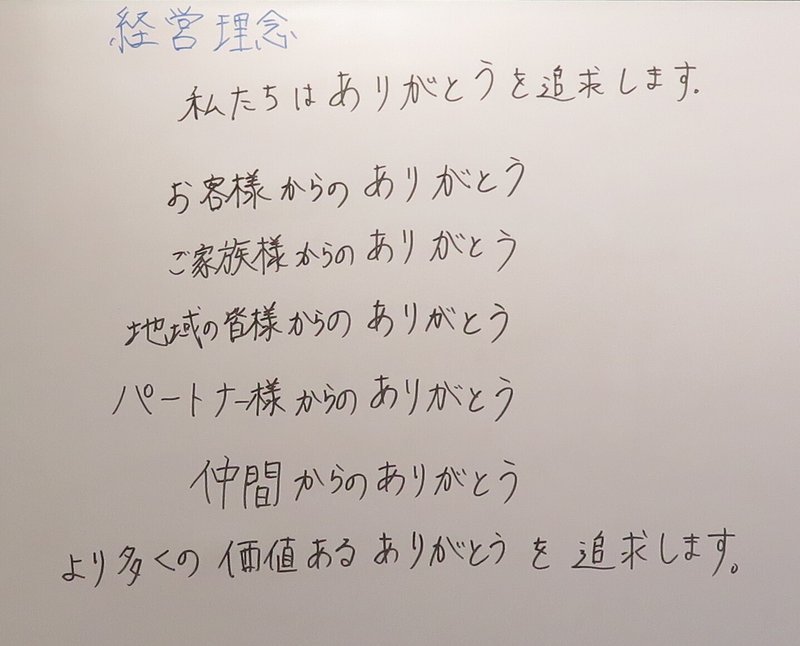 経営理念
私たちはありがとうを追求します.
お客様からのありがとう
ご家族様からのありがとう
地域の皆様からのありがとう
パートナー様からのありがとう
仲間からのありがとう
より多くの価値あるありがとうを追求します。